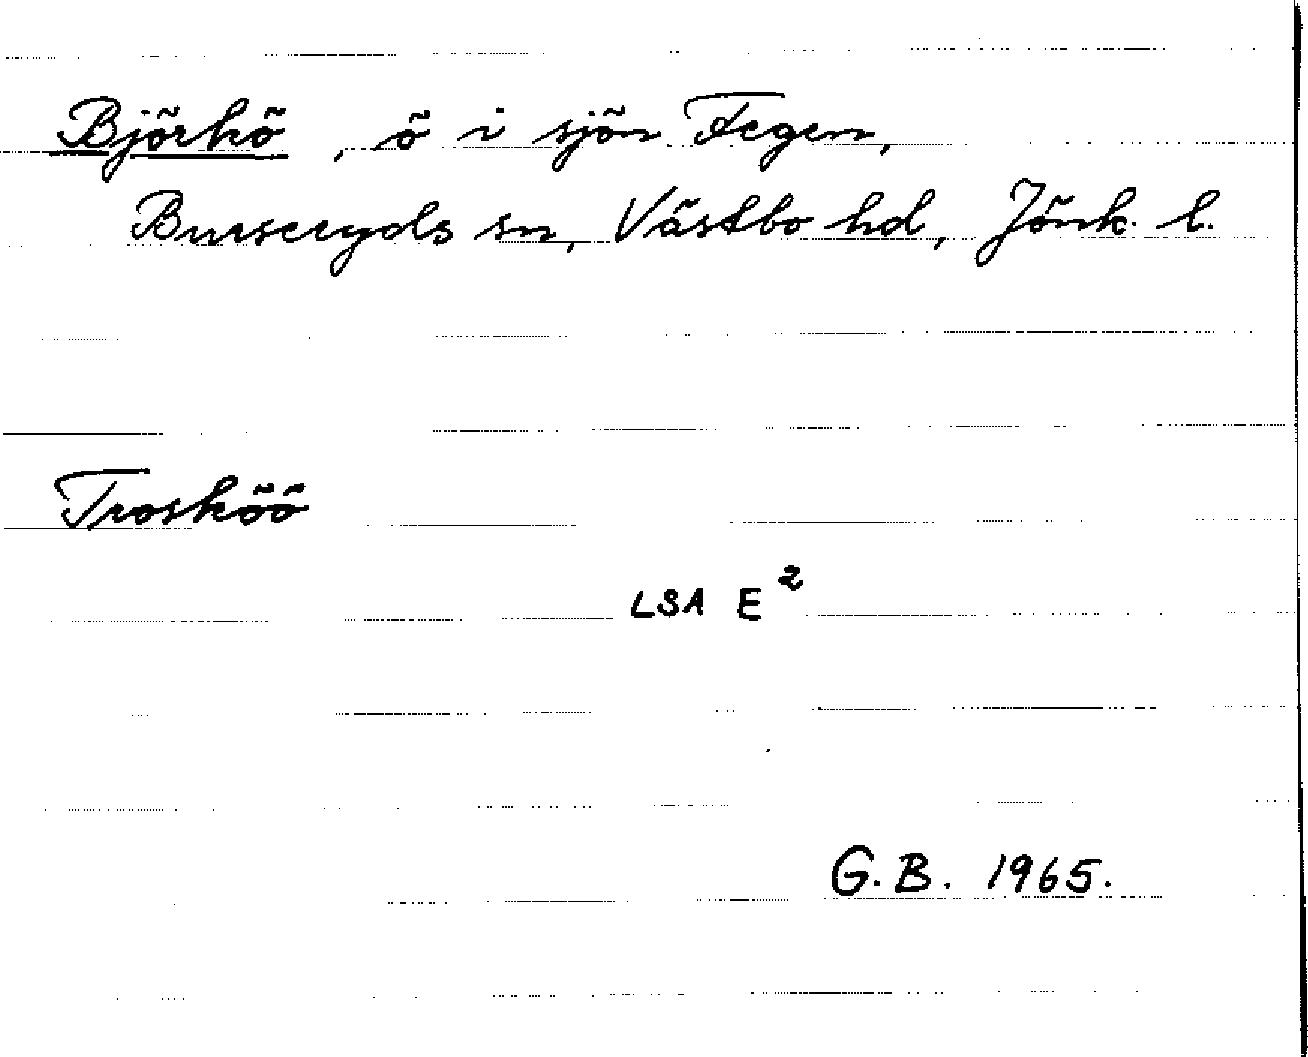 Björkö, ö i sjön Fegen,
Burseryds sn, Västbo hd, Jönk. l.
Trosköö
LSA E²
G.B. 1965.